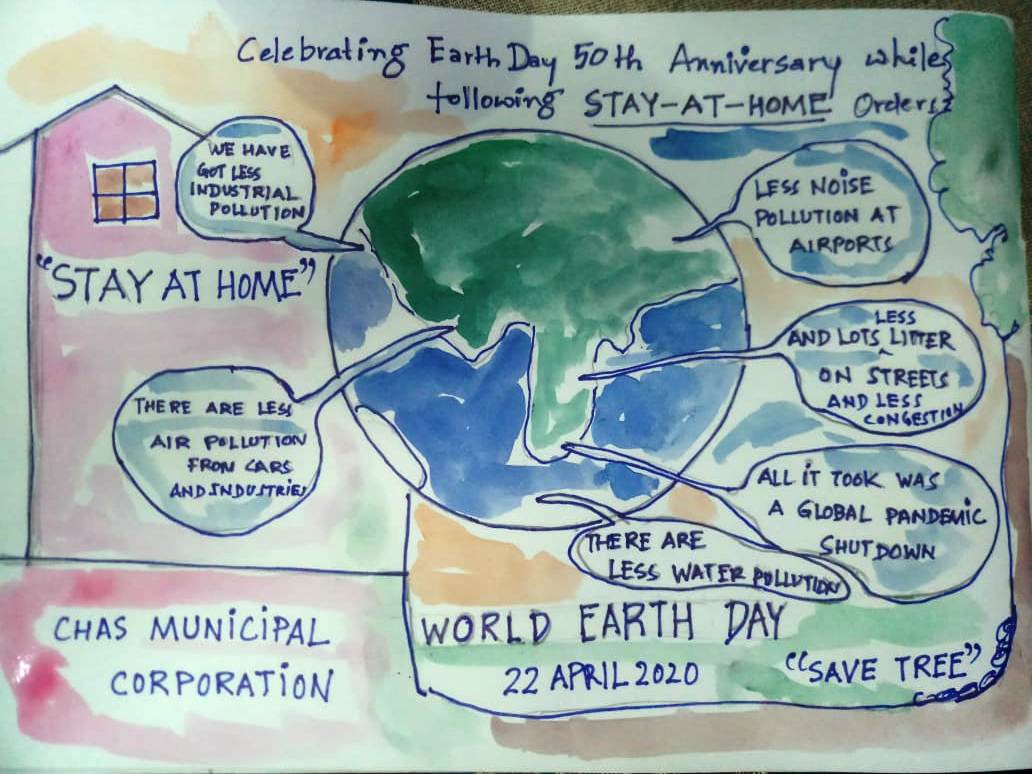 Celebrating Earth Day 50th Anniversary while
following STAY-AT-HOME Orders
WE HAVE
GOT LESS
INDUSTRIAL
POLLUTION
"STAY AT HOME"
THERE ARE LESS
AIR POLLUTION
FROM CARS
AND INDUSTRIES
LESS NOISE
POLLUTION AT
AIRPORTS
LESS
AND LOTS LITTER
ON STREETS
AND LESS
CONGESTION
ALL IT TOOK WAS
A GLOBAL PANDEMIC
SHUTDOWN
THERE ARE
LESS WATER POLLUTION
CHAS MUNICIPAL
CORPORATION
WORLD EARTH DAY
22 APRIL 2020
"SAVE TREE"